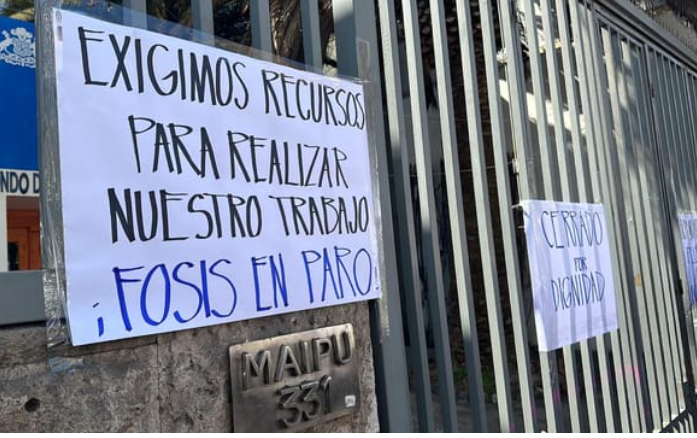 EXIGIMOS RECURSOS
PARA REALIZAR
NUESTRO TRABAJO
¡FOSIS EN PARO!
NDO D
MAIPU
331
CERRADO
POR
DIGNIDAD